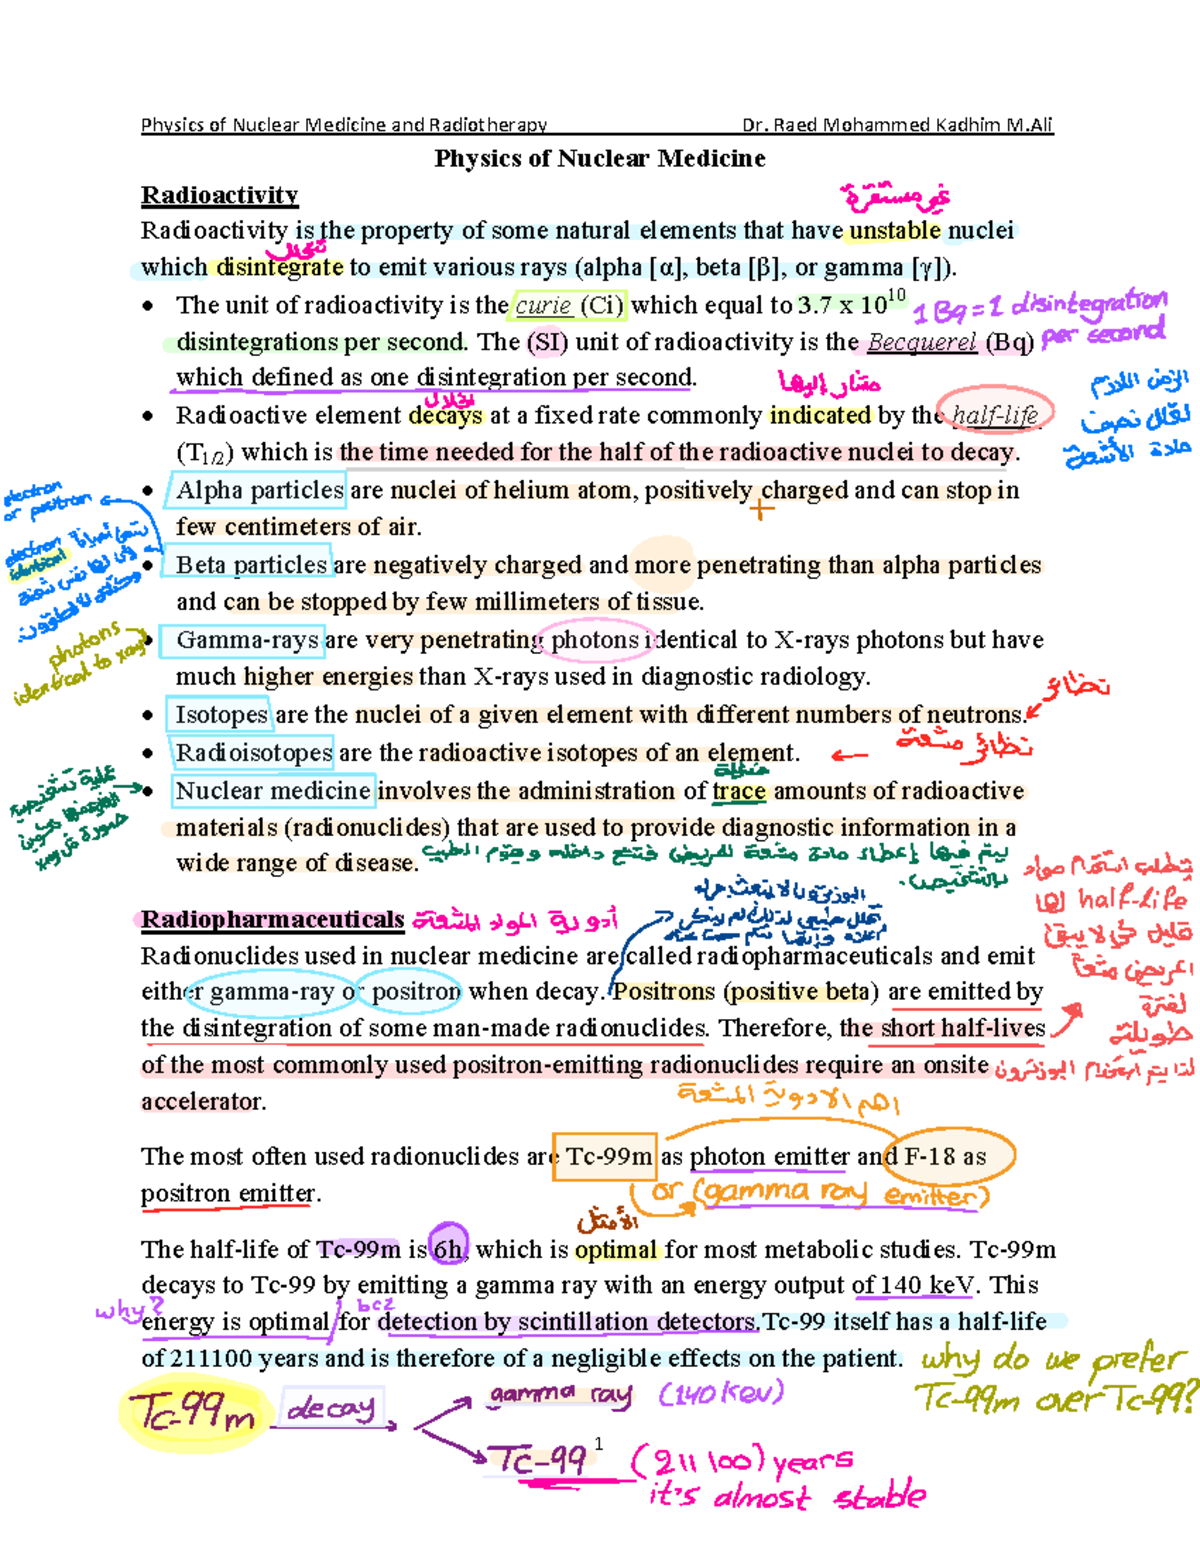 Physics of Nuclear Medicine and Radiotherapy Dr. Raed Mohammed Kadhim M.Ali
Physics of Nuclear Medicine
Radioactivity
غير مستقرة
Radioactivity is the property of some natural elements that have unstable nuclei
تتحلل
which disintegrate to emit various rays (alpha [α], beta [β], or gamma [γ]).
• The unit of radioactivity is the curie (Ci) which equal to 3.7 x 10^10
1 Bq = 1 disintegration
per second
disintegrations per second. The (SI) unit of radioactivity is the Becquerel (Bq)
which defined as one disintegration per second.
مشار إليها
• Radioactive element decays at a fixed rate commonly indicated by the half-life
(T1/2) which is the time needed for the half of the radioactive nuclei to decay.
الزمن اللازم
نصف
مادة الأشعة
• Alpha particles are nuclei of helium atom, positively charged and can stop in
+
few centimeters of air.
electron
or positron
• Beta particles are negatively charged and more penetrating than alpha particles
and can be stopped by few millimeters of tissue.
electron
identical
• Gamma-rays are very penetrating photons identical to X-rays photons but have
much higher energies than X-rays used in diagnostic radiology.
photons
identical to xray
• Isotopes are the nuclei of a given element with different numbers of neutrons.
نظائر
• Radioisotopes are the radioactive isotopes of an element.
نظائر مشعة
• Nuclear medicine involves the administration of trace amounts of radioactive
materials (radionuclides) that are used to provide diagnostic information in a
wide range of disease.
يتم فيها إعطاء مادة مشعة للمريض
بالتشخيص.
Radiopharmaceuticals
أدوية المواد المشعة
Radionuclides used in nuclear medicine are called radiopharmaceuticals and emit
either gamma-ray or positron when decay. Positrons (positive beta) are emitted by
the disintegration of some man-made radionuclides. Therefore, the short half-lives
of the most commonly used positron-emitting radionuclides require an onsite
accelerator.
يتطلب استخدام مواد
لها half-life
قليل
لفترة
طويلة
اهم الادوية المشعة
The most often used radionuclides are Tc-99m as photon emitter and F-18 as
positron emitter.
or (gamma ray emitter)
الأمثل
The half-life of Tc-99m is 6h, which is optimal for most metabolic studies. Tc-99m
decays to Tc-99 by emitting a gamma ray with an energy output of 140 keV. This
why? bcz
energy is optimal for detection by scintillation detectors.Tc-99 itself has a half-life
of 211100 years and is therefore of a negligible effects on the patient.
why do we prefer
Tc-99m over Tc-99?
Tc-99m decay
gamma ray (140 kev)
1
Tc-99 (211 100) years
it's almost stable